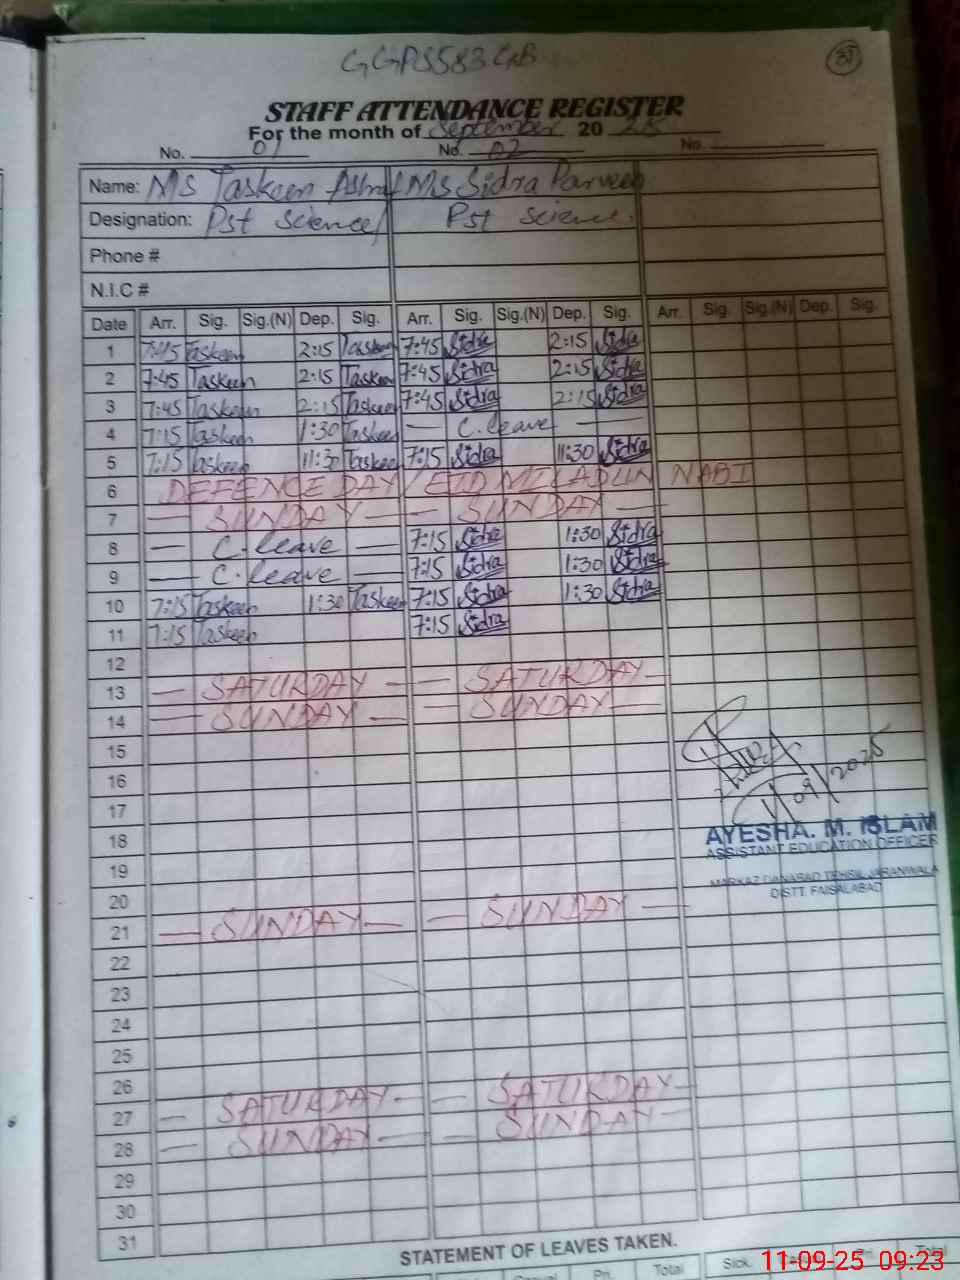 GGPS 583 GB
87
STAFF ATTENDANCE REGISTER
For the month of September 20 25
No. 01 No. 02 No.
Name: Ms Taskeen Ashraf Ms Sidra Parveen
Designation: Pst science Pst science.
Phone #
N.I.C #
Date Arr. Sig. Sig.(N) Dep. Sig. Arr. Sig. Sig.(N) Dep. Sig. Arr. Sig. Sig.(N) Dep. Sig.
1 7:45 Taskeen 2:15 Taskeen 7:45 Sidra 2:15 Sidra
2 7:45 Taskeen 2:15 Taskeen 7:45 Sidra 2:15 Sidra
3 7:45 Taskeen 2:15 Taskeen 7:45 Sidra 2:15 Sidra
4 7:15 Taskeen 1:30 Taskeen — C.leave —
5 7:15 Taskeen 11:30 Taskeen 7:15 Sidra 11:30 Sidra
6 DEFENCE DAY / EID MILADUN NABI
7 — SUNDAY — — SUNDAY —
8 — C.leave — 7:15 Sidra 1:30 Sidra
9 — C.leave — 7:15 Sidra 1:30 Sidra
10 7:15 Taskeen 1:30 Taskeen 7:15 Sidra 1:30 Sidra
11 7:15 Taskeen 7:15 Sidra
12
13 — SATURDAY — — SATURDAY —
14 — SUNDAY — — SUNDAY —
15
16
17
11/09/2025
18
AYESHA. M. ISLAM
ASSISTANT EDUCATION OFFICER
19
MARKAZ DANABAD TEHSIL JARANWALA
DISTT. FAISALABAD
20
21 — SUNDAY — — SUNDAY —
22
23
24
25
26
27 — SATURDAY — — SATURDAY —
28 — SUNDAY — — SUNDAY —
29
30
31
STATEMENT OF LEAVES TAKEN.
Casual Pri. Total Sick. Pri. Total
11-09-25 09:23